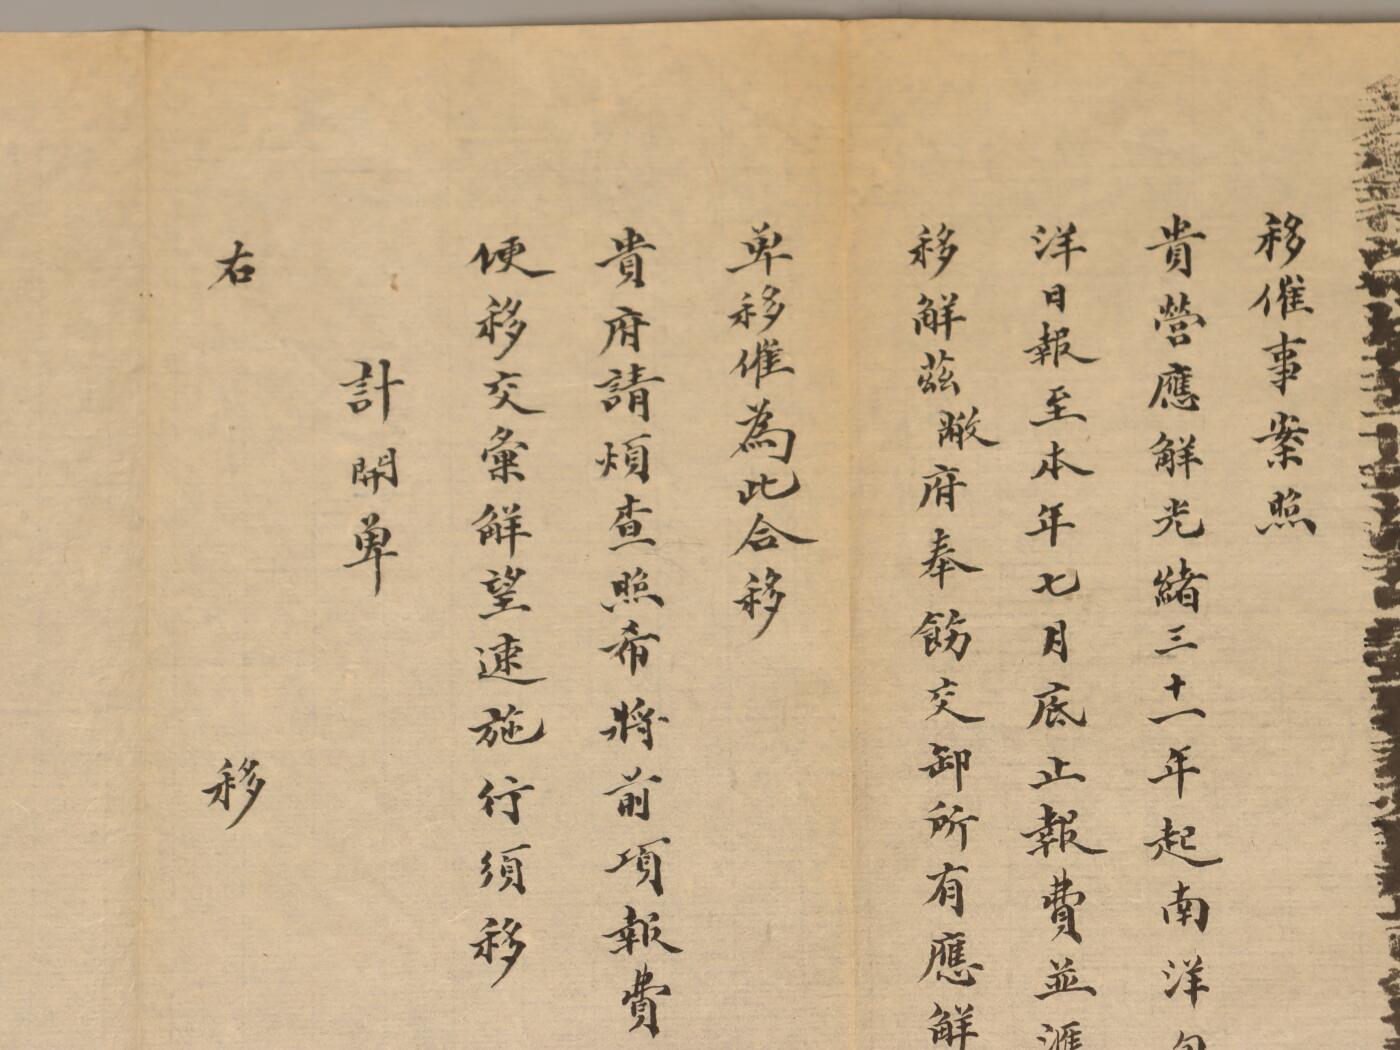 移催事案照
貴營應解光緒三十一年起南洋旬
洋日報至本年七月底止報費並滙
移解茲敝府奉飭交卸所有應解
單移催為此合移
貴府請煩查照希將前項報費
便移交彙解望速施行須移
計開單
右移